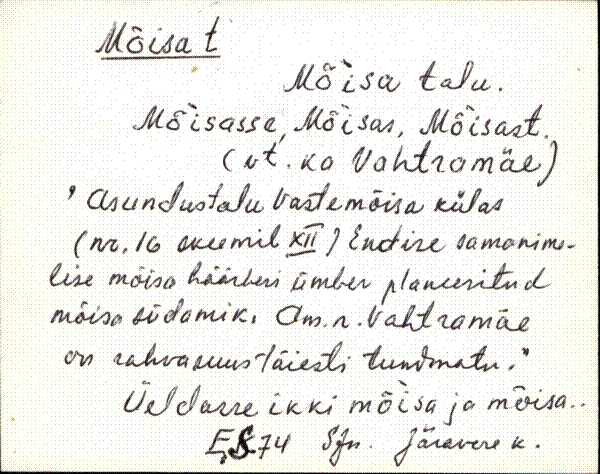 Mõisa t
Mõ`isa talu.
Mõ`isasse, Mõ`isas, Mõ`isast.
(vt. ka Vahtramäe)
" Asundustalu Vastemõisa külas
(nr. 16 skeemil XII) Endise samanime-
lise mõisa häärberi ümber planeeritud
mõisa südamik. Am. n. Vahtramäe
on rahvasuus täiesti tundmatu."
Üeldasse ikki mõ`isa ja mõ`isa..
ES 74 Sjn. Järavere k.